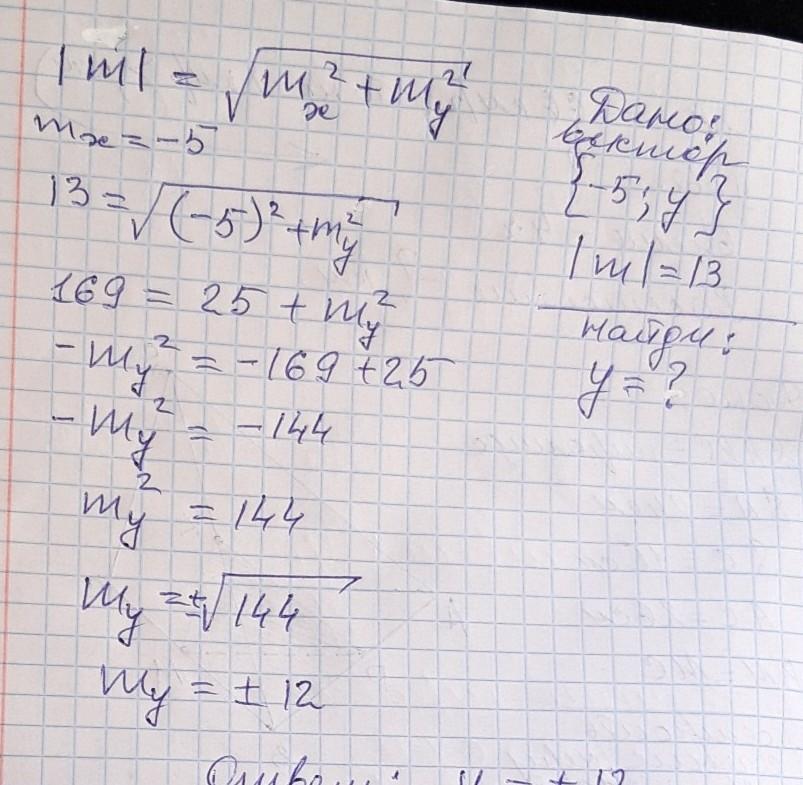 |m| = √(mₓ² + m_y²)
mₓ = -5
13 = √((-5)² + m_y²)
169 = 25 + m_y²
- m_y² = -169 + 25
- m_y² = -144
m_y² = 144
m_y = ±√144
m_y = ± 12
Дано:
вектор
{-5; y}
|m| = 13
найти:
y = ?
Ответ: y = ± 12